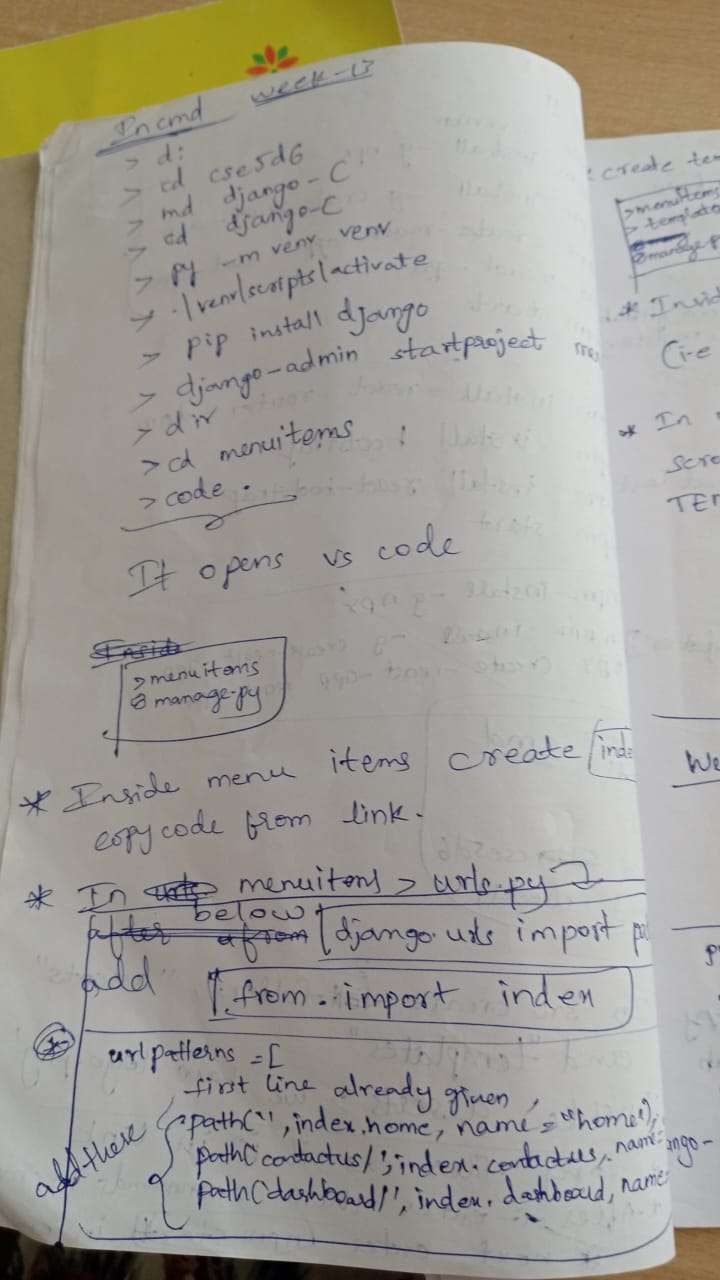 In cmd week-13
> d:
> cd cse5d6
> md django-C
> cd django-C
> py -m venv venv
> .\venv\scripts\activate
> pip install django
> django-admin startproject me
> dir
> cd menuitems
> code .
It opens vs code
Inside
> menuitems
manage.py
* Inside menu items create inde
copy code from link.
* In menuitems > urls.py
below
after from django.urls import pa
add from . import index
* urlpatterns = [
first line already given,
add these
path('', index.home, name = "home"),
path('contactus/', index.contactus, name=
path('dashboard/', index.dashboard, name=
create tem
> menuitems
> template
manage.p
* Insid
(i-e
* In
Scro
TEM
We
ango-